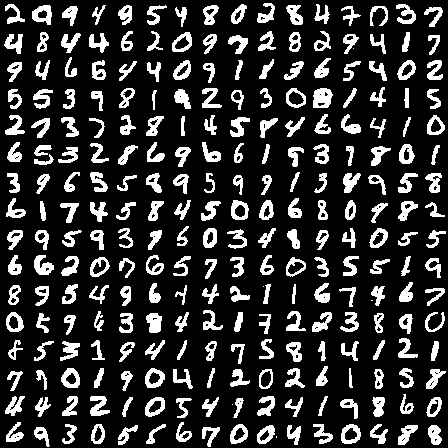 2 9 9 4 9 5 4 8 0 2 8 4 7 0 3 7
4 8 4 4 6 2 0 9 7 2 8 2 9 4 1 7
9 4 6 6 4 4 0 9 1 8 3 6 5 4 0 2
5 5 3 9 8 1 9 2 9 3 0 1 4 1 5
2 7 3 7 2 8 1 4 5 8 4 6 6 4 1 0
6 5 3 2 8 6 9 6 6 1 5 3 9 8 0 1
3 9 6 5 5 8 9 5 9 9 1 3 4 9 5 8
6 1 7 4 5 8 4 5 0 0 6 8 0 9 8 2
9 9 5 9 3 9 6 0 3 4 8 9 4 0 5 5
6 6 2 0 7 6 5 7 3 6 0 3 5 5 1 9
8 9 5 4 9 6 4 4 2 1 1 6 7 4 6 7
0 5 9 6 3 8 4 2 1 7 2 2 3 8 9 0
8 5 3 1 9 4 1 8 7 5 8 1 4 1 2 1
7 9 0 1 9 0 4 1 2 0 2 6 1 8 5 8
4 4 2 2 1 0 5 4 9 2 4 1 9 8 6 0
6 9 3 0 5 5 6 7 0 0 4 3 0 4 8 8